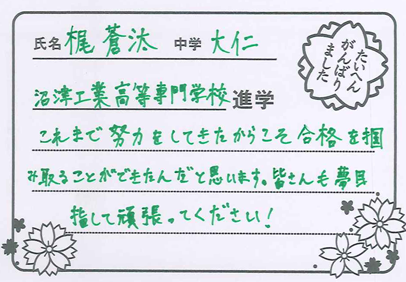 氏名 梶 蒼汰 中学 大仁
沼津工業高等専門学校 進学
これまで努力をしてきたからこそ合格を掴
み取ることができたんだと思います。皆さんも夢目
指して頑張ってください!
たいへん
がんばり
ました